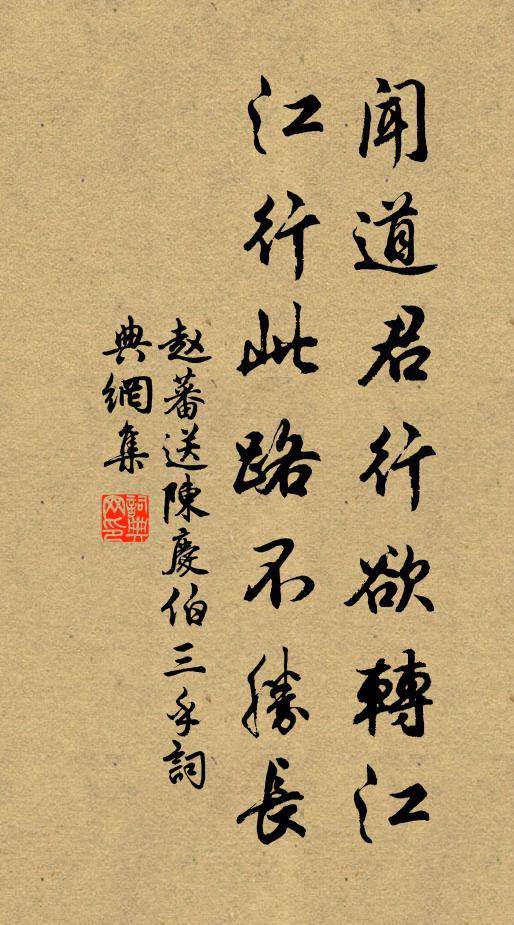 聞道君行欲轉江
江行此路不勝長
赵蕃送陳慶伯三手詞
典網集
詞典
网印